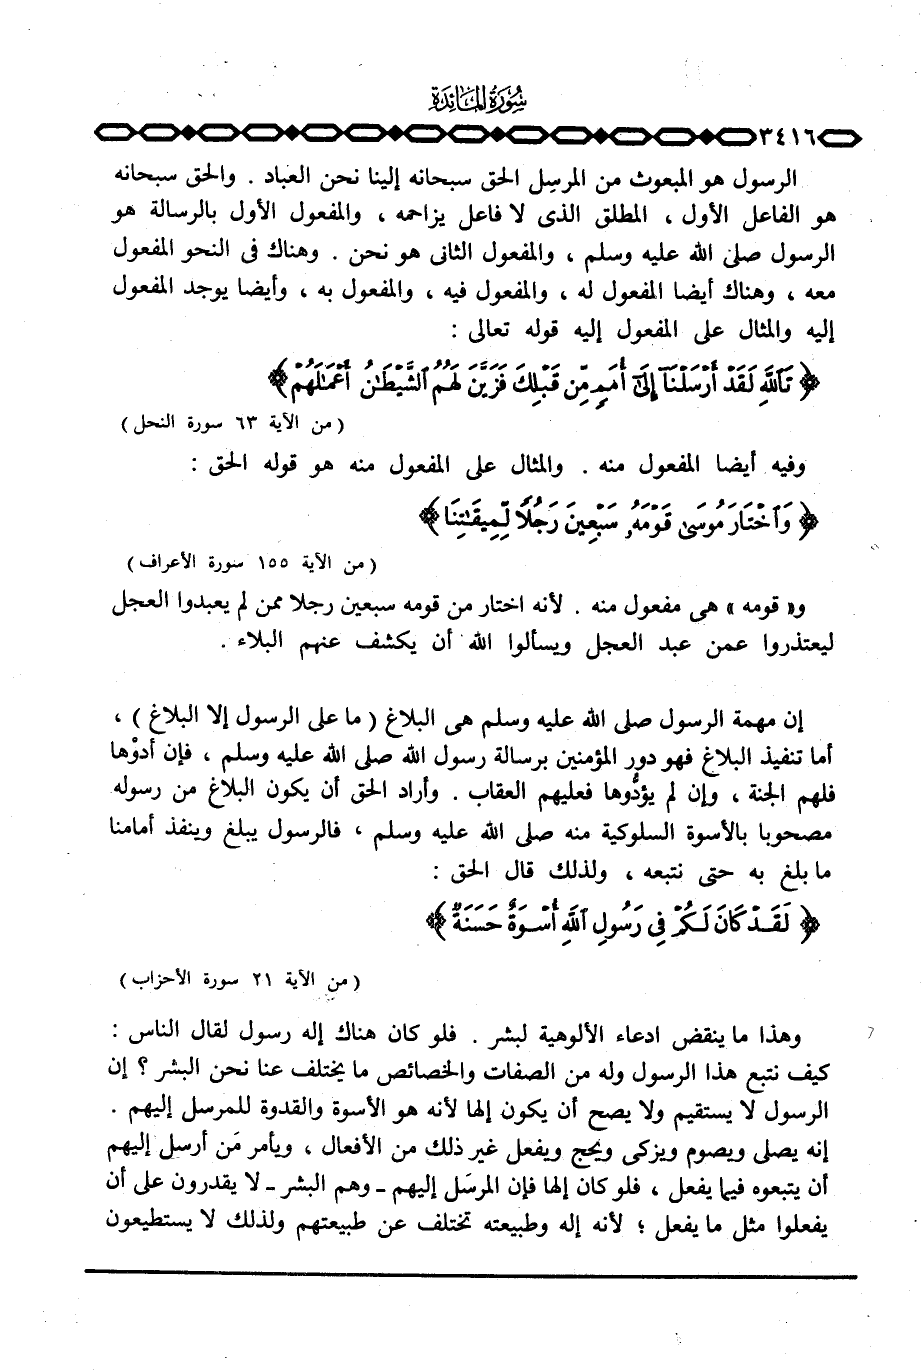 سُورَةُ المَائِدَة
٣٤١٦
الرسول هو المبعوث من المرسِل الحق سبحانه إلينا نحن العباد . والحق سبحانه
هو الفاعل الأول ، المطلق الذى لا فاعل يزاحمه ، والمفعول الأول بالرسالة هو
الرسول صلى الله عليه وسلم ، والمفعول الثانى هو نحن . وهناك فى النحو المفعول
معه ، وهناك أيضا المفعول له ، والمفعول فيه ، والمفعول به ، وأيضا يوجد المفعول
إليه والمثال على المفعول إليه قوله تعالى :
﴿ تَٱللَّهِ لَقَدْ أَرْسَلْنَآ إِلَىٰٓ أُمَمٍ مِّن قَبْلِكَ فَزَيَّنَ لَهُمُ ٱلشَّيْطَٰنُ أَعْمَٰلَهُمْ ﴾
( من الآية ٦٣ سورة النحل )
وفيه أيضا المفعول منه . والمثال على المفعول منه هو قوله الحق :
﴿ وَٱخْتَارَ مُوسَىٰ قَوْمَهُۥ سَبْعِينَ رَجُلًا لِّمِيقَٰتِنَا ﴾
( من الآية ١٥٥ سورة الأعراف )
و« قومه » هى مفعول منه . لأنه اختار من قومه سبعين رجلا ممن لم يعبدوا العجل
ليعتذروا عمن عبد العجل ويسألوا الله أن يكشف عنهم البلاء .
إن مهمة الرسول صلى الله عليه وسلم هى البلاغ ( ما على الرسول إلا البلاغ ) ،
أما تنفيذ البلاغ فهو دور المؤمنين برسالة رسول الله صلى الله عليه وسلم ، فإن أدوْها
فلهم الجنة ، وإن لم يؤدُّوها فعليهم العقاب . وأراد الحق أن يكون البلاغ من رسوله
مصحوبا بالأسوة السلوكية منه صلى الله عليه وسلم ، فالرسول يبلغ وينفذ أمامنا
ما بلغ به حتى نتبعه ، ولذلك قال الحق :
﴿ لَقَدْ كَانَ لَكُمْ فِى رَسُولِ ٱللَّهِ أُسْوَةٌ حَسَنَةٌ ﴾
( من الآية ٢١ سورة الأحزاب )
وهذا ما ينقض ادعاء الألوهية لبشر . فلو كان هناك إله رسول لقال الناس :
كيف نتبع هذا الرسول وله من الصفات والخصائص ما يختلف عنا نحن البشر ؟ إن
الرسول لا يستقيم ولا يصح أن يكون إلها لأنه هو الأسوة والقدوة للمرسل إليهم .
إنه يصلى ويصوم ويزكى ويحج ويفعل غير ذلك من الأفعال ، ويأمر مَن أرسل إليهم
أن يتبعوه فيما يفعل ، فلو كان إلها فإن المرسَل إليهم ـ وهم البشر ـ لا يقدرون على أن
يفعلوا مثل ما يفعل ؛ لأنه إله وطبيعته تختلف عن طبيعتهم ولذلك لا يستطيعون